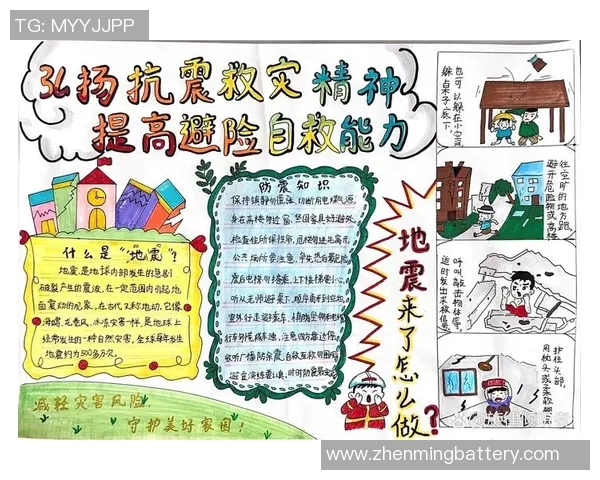 TG: MYYJJPP
弘扬抗震救灾精神
提高避险自救能力
什么是“地震”?
地震是地球内部发生的急剧
破裂产生的震波,在一定范围内引起地
面震动的现象,在古代又称地动,它像
海啸、龙卷风、冰冻灾害一样,是地球上
经常发生的一种自然灾害,全球每年发生
地震约为500多万次。
减轻灾害风险
守护美好家园!
防震知识
保持镇静勿慌张,切断用电煤气源
身在高楼勿近窗,坚固家具好避处
检查住所保性命,危楼勿近先离开
公共场所要注意,争先恐后最危险
震后电梯勿搭乘,上下楼梯要小心
听从老师避桌下,顺序离开到空地
室外行走避来车,
行车
收听广播防余震,自救互救勿围观
时时防震最安全
地震来了怎么做?
也可以躲在小空间
躲桌子底下,
往空旷的地方跑,
避开危险物或高楼
呼叫,敲击物体等,
适时发出求救信号
护住头部,
用枕头或柔软物
www.zhenmingbattery.com